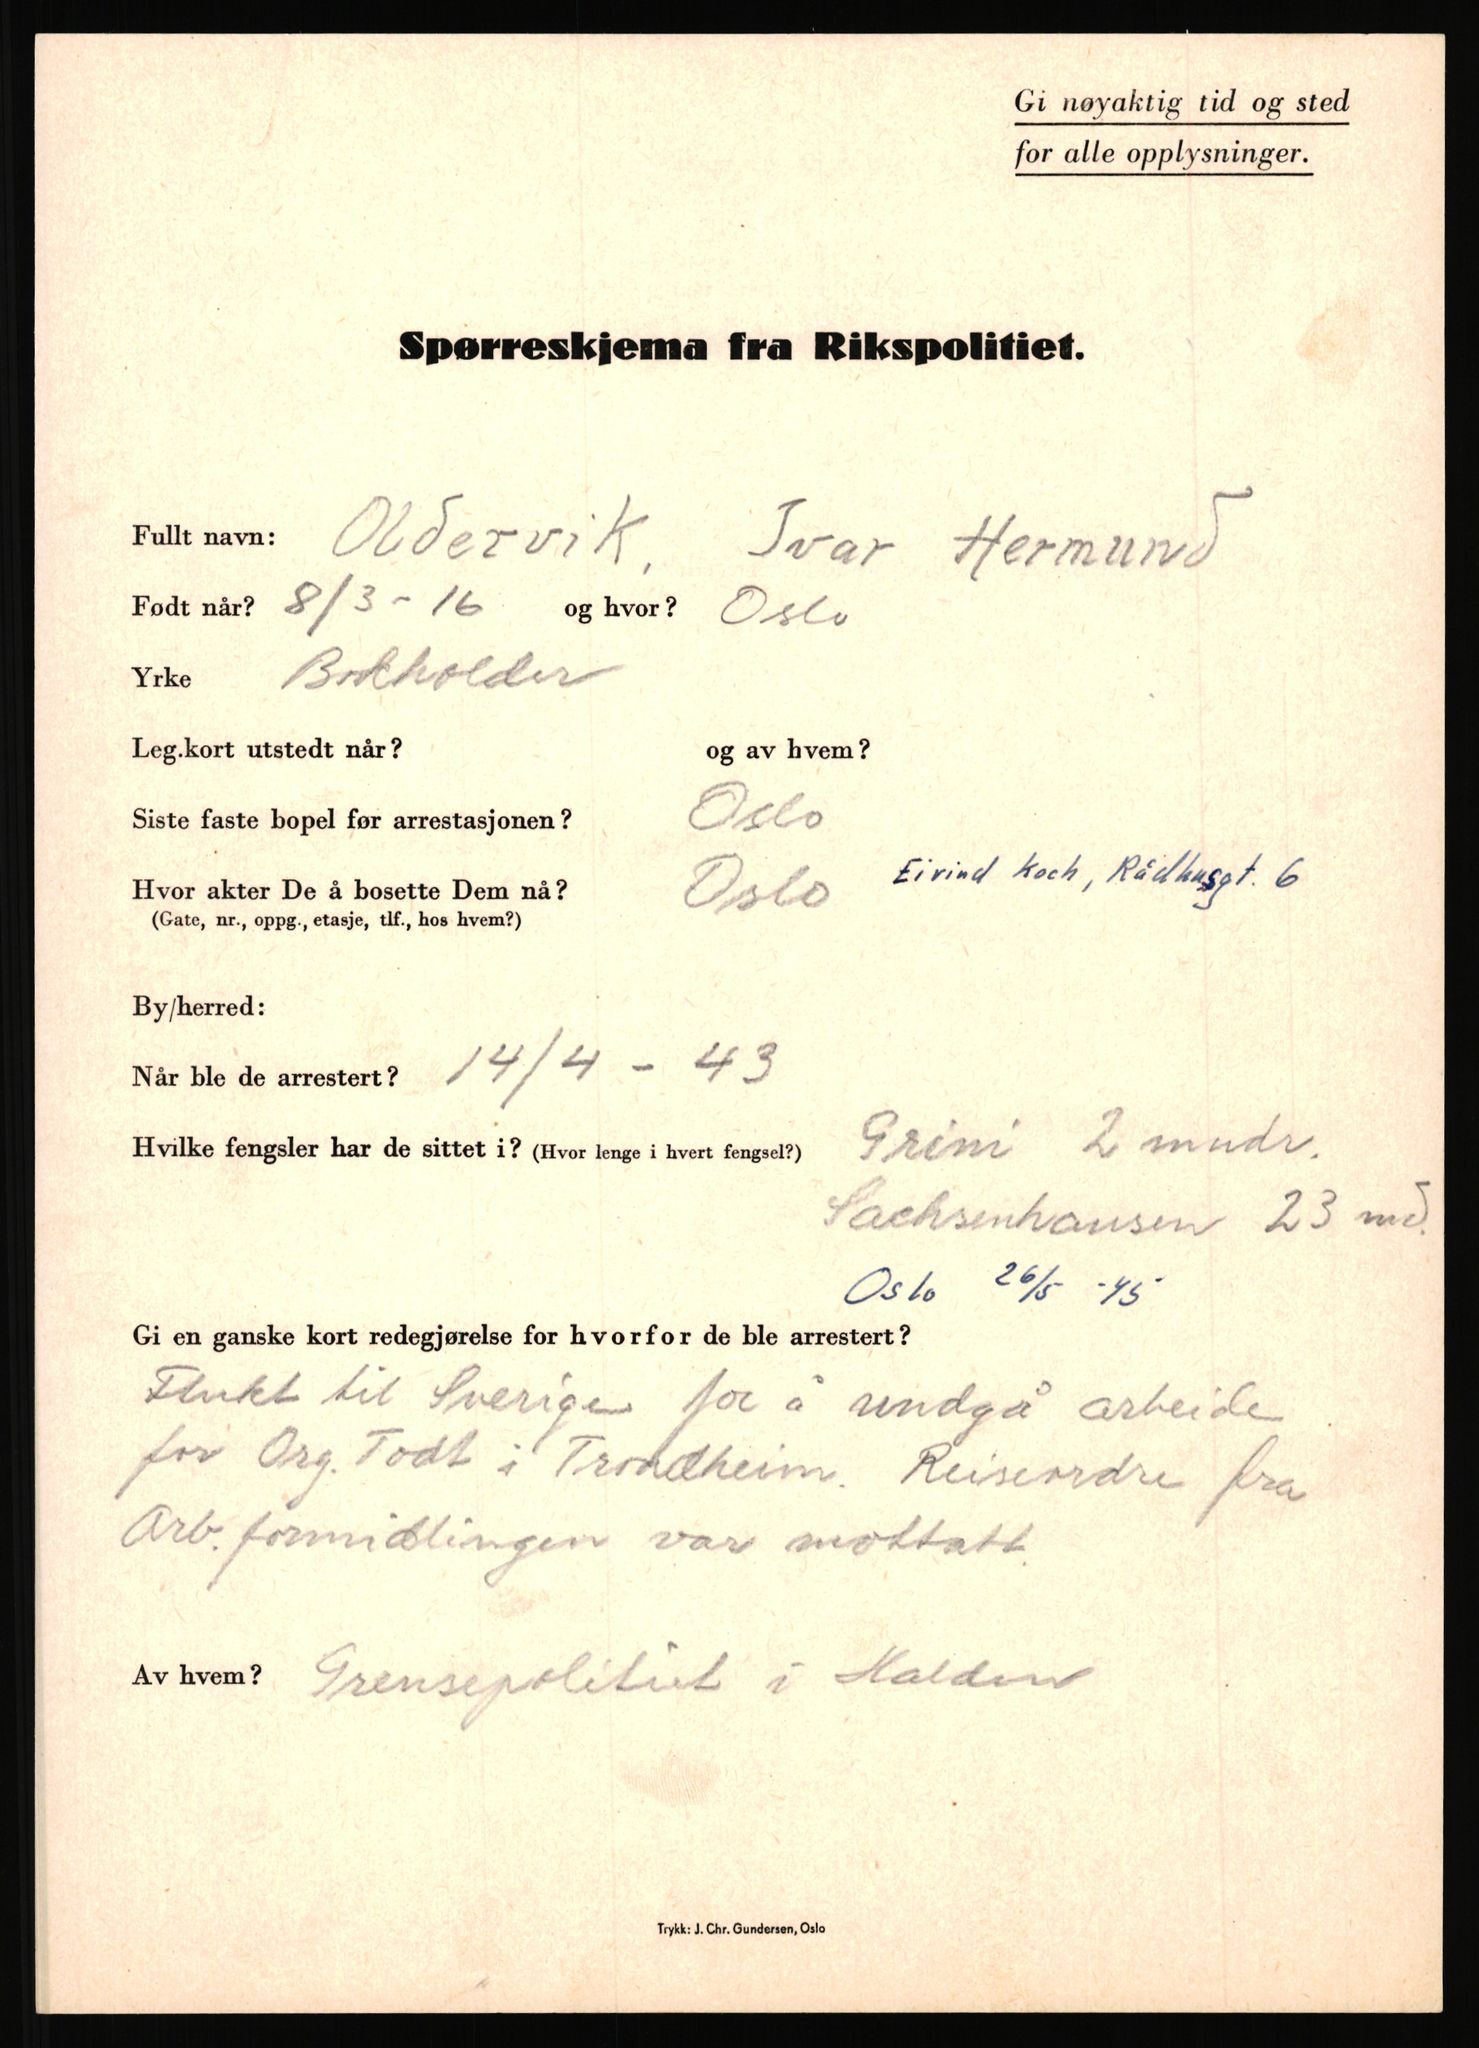 Gi nøyaktig tid og sted
for alle opplysninger.
Spørreskjema fra Rikspolitiet.
Fullt navn: Oldervik, Ivar Hermund
Født når? 8/3-16 og hvor? Oslo
Yrke Bokholder
Leg.kort utstedt når? og av hvem?
Siste faste bopel før arrestasjonen? Oslo
Hvor akter De å bosette Dem nå? Oslo Eivind Koch, Rådhusgt. 6
(Gate, nr., oppg., etasje, tlf., hos hvem?)
By/herred:
Når ble de arrestert? 14/4 - 43
Hvilke fengsler har de sittet i? (Hvor lenge i hvert fengsel?) Grini 2 mndr.
Sachsenhausen 23 md.
Oslo 26/5 -45
Gi en ganske kort redegjørelse for hvorfor de ble arrestert?
Flukt til Sverige for å undgå arbeide
for Org. Todt i Trondheim. Reiseordre fra
Arb. formidlingen var mottatt.
Av hvem? Grensepolitiet i Halden
Trykk: J. Chr. Gundersen, Oslo